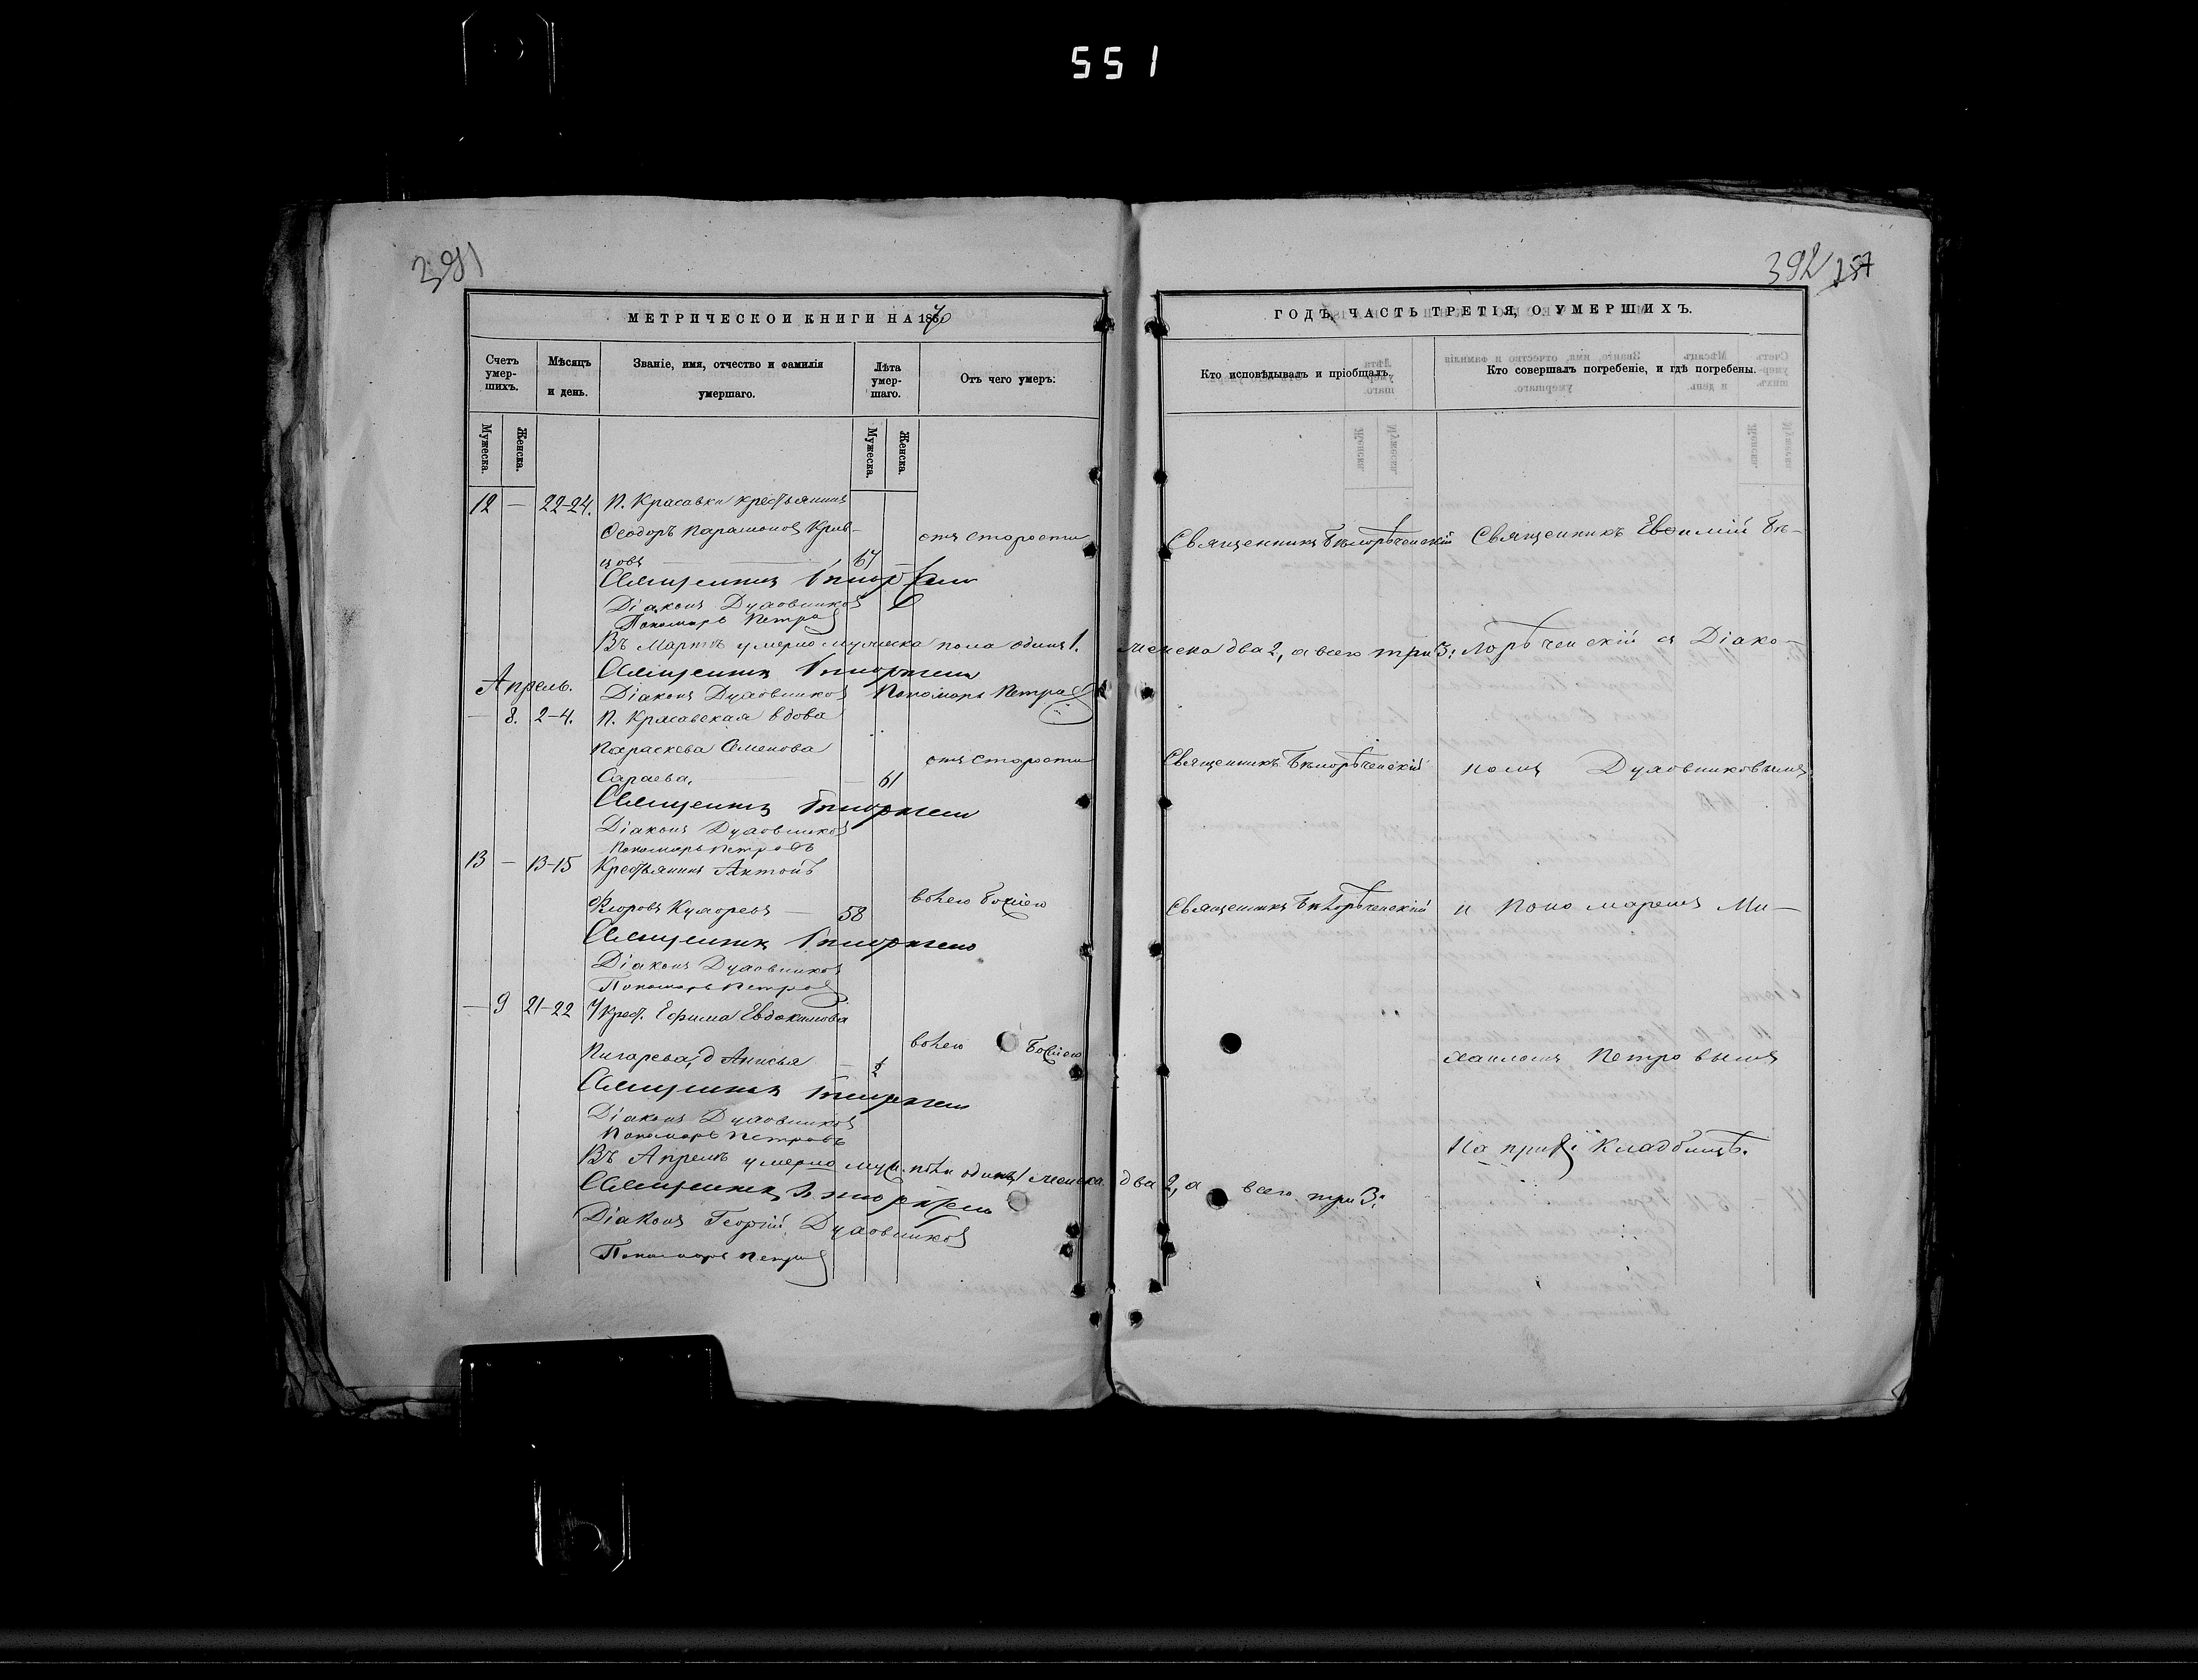 551
391
392 157
МЕТРИЧЕСКОЙ КНИГИ НА 1870
ГОДЪ, ЧАСТЬ ТРЕТІЯ, О УМЕРШИХЪ.
Счетъ умершихъ.
Мѣсяцъ и день.
Званіе, имя, отчество и фамилія умершаго.
Лѣта умершаго.
Отъ чего умеръ:
Кто исповѣдывалъ и пріобщалъ.
Кто совершалъ погребеніе, и гдѣ погребены.
Мужеска. Женска.
Мужеска. Женска.
12 — 22-24. П. Красавки крестьянинъ
Ѳеодоръ Парамоновъ Крив-
цовъ — 67 отъ старости Священникъ Бѣлорѣченскій Священникъ Евѳимій Бѣ-
Священникъ
Діаконъ Духовниковъ
Пономарь Петровъ
Въ Мартѣ умерло мужеска пола одинъ 1. женска два 2, а всего три 3. лорѣченскій съ Діако-
Священникъ
Апрель.
Діаконъ Духовниковъ Пономарь Петровъ
— 8. 2-4. П. Красавская вдова
Параскева Семенова
Сараева, — 61 отъ старости Священникъ Бѣлорѣченскій номъ Духовниковымъ
Священникъ
Діаконъ Духовниковъ
Пономарь Петровъ
13 — 13-15 Крестьянинъ Антонъ
58 волею Божіею Священникъ Бѣлорѣченскій и Пономаремъ Ми-
Священникъ
Діаконъ Духовниковъ
Пономарь Петровъ
— 9 21-22 У крест. Ефима Евдокимова
Пигарева, д. Анисья — волею Божіею хаиломъ Петровымъ
Священникъ
Діаконъ Духовниковъ
Пономарь Петровъ
На прих. кладбищѣ.
Въ Апрелѣ умерло муж. пола одинъ 1 женска два 2, а всего три 3.
Священникъ
Діаконъ Георгій Духовниковъ
Пономарь Петровъ